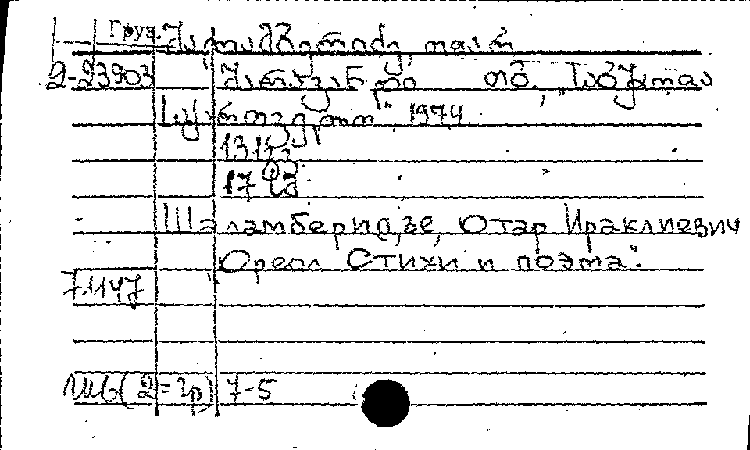 Груз. შალამბერიძე, ოთარ
2-23903 შარავანდი თბ., "საბჭოთა
საქართველო", 1974
131 გვ.
17 კ.
Шаламберидзе, Отар Ираклиевич
Ореол Стихи и поэма.
7-5